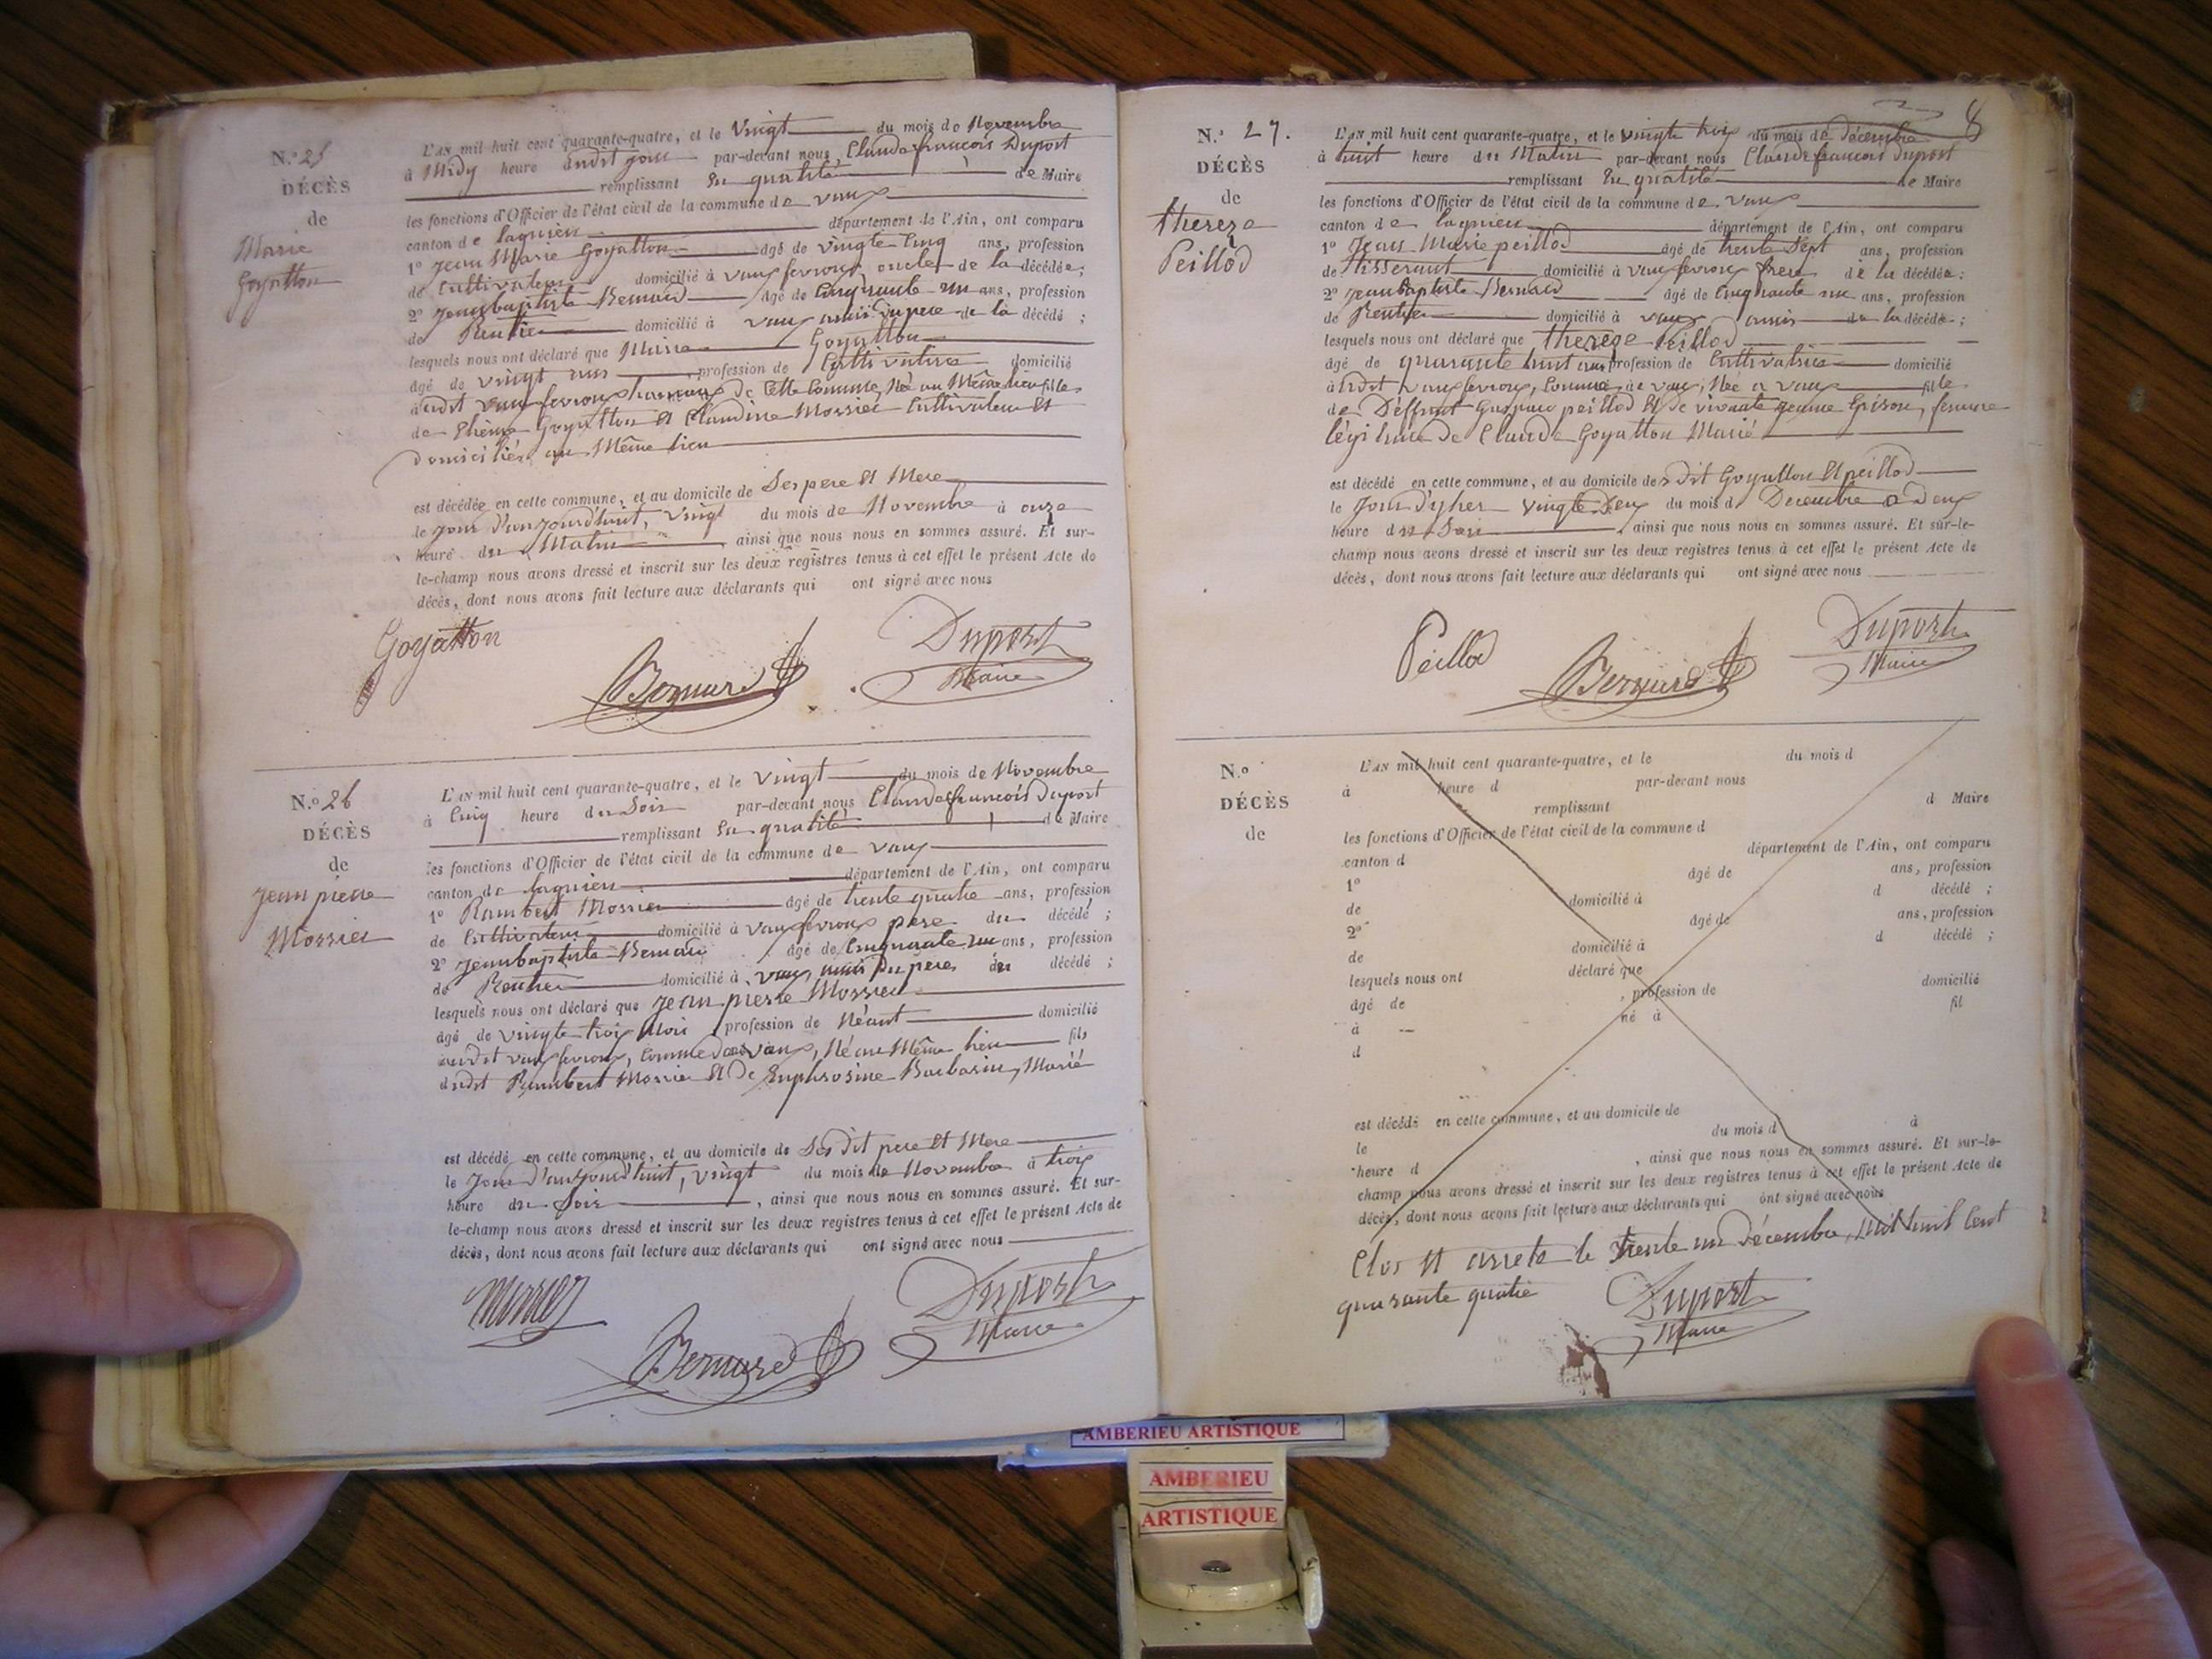 N.º 25
DÉCÈS
de
Marie
Goyatton
L'AN mil huit cent quarante-quatre, et le Vingt du mois de Novembre
à Midy heure dudit jour par-devant nous, Claude françois Duport
remplissant En qualité de Maire
les fonctions d'Officier de l'état civil de la commune de vaux
canton de lagnieu département de l'Ain, ont comparu
1º Jean Marie Goyatton âgé de vingte Cinq ans, profession
de Cultivateur domicilié à vaux fevroux, oncle de la décédée;
2º Jeanbaptiste Bernard âgé de Cinquante un ans, profession
de Rentier domicilié à vaux amis du pere de la décédé;
lesquels nous ont déclaré que Marie Goyatton
âgé de vingt ans, profession de Cultivatrice domicilié
audit vaux fevroux hameau de Cette Commune, Né au Même lieu fille
de Goyatton Et Claudine Mossier Cultivateur Et
domiciliés au Même lieu
est décédée en cette commune, et au domicile de Ses pere Et Mere
le Jour d'aujourd'huit, vingt du mois de Novembre à onze
heure du Matin, ainsi que nous nous en sommes assuré. Et sur-
le-champ nous avons dressé et inscrit sur les deux registres tenus à cet effet le présent Acte de
décès, dont nous avons fait lecture aux déclarants qui ont signé avec nous
Goyatton
Bernard
Duport
Maire
N.º 26
DÉCÈS
de
Jean pierre
Mossier
L'AN mil huit cent quarante-quatre, et le Vingt du mois de Novembre
à Cinq heure du Soir par-devant nous Claude françois Duport
remplissant En qualité de Maire
les fonctions d'Officier de l'état civil de la commune de vaux
canton de lagnieu département de l'Ain, ont comparu
1º Rambert Mossier âgé de trente quatre ans, profession
de Cultivateur domicilié à vaux fevroux pere du décédé;
2º Jeanbaptiste Bernard âgé de Cinquante un ans, profession
de Rentier domicilié à vaux, amis du pere du décédé;
lesquels nous ont déclaré que Jean pierre Mossier
âgé de vingte trois Mois, profession de Néant domicilié
audit vaux fevroux, Comme de vaux, Né au Même lieu fils
dudit Rambert Mossier Et De Euphrosine Barbarin, Marié
est décédé en cette commune, et au domicile de Ses dit pere Et Mere
le Jour d'aujourd'huit, vingt du mois de Novembre à trois
heure du Soir, ainsi que nous nous en sommes assuré. Et sur-
le-champ nous avons dressé et inscrit sur les deux registres tenus à cet effet le présent Acte de
décès, dont nous avons fait lecture aux déclarants qui ont signé avec nous
Mossier
Bernard
Duport
Maire
8
N.º 27.
DÉCÈS
de
thereze
Peillod
L'AN mil huit cent quarante-quatre, et le vingte trois du mois de Décembre
à huit heure du Matin par-devant nous Claude françois Duport
remplissant En qualité de Maire
les fonctions d'Officier de l'état civil de la commune de vaux
canton de lagnieu département de l'Ain, ont comparu
1º Jean Marie peillod âgé de trente Sept ans, profession
de tisserant domicilié à vaux fevroux frere de la décédée;
2º Jeanbaptiste Bernard âgé de Cinquante un ans, profession
de Rentier domicilié à vaux amis de la décédé;
lesquels nous ont déclaré que thereze Peillod
âgé de quarante huit ans profession de Cultivatrice domicilié
audit vaux fevroux, Commune de vaux, Née a vaux fille
de Déffunt peillod Et de vivante Jeanne Grison, femme
légitime de Claude Goyatton Marié
est décédé en cette commune, et au domicile des dit Goyatton Et peillod
le Jour d'yher vingte Deux du mois d Decembre a Deux
heure du Soir, ainsi que nous nous en sommes assuré. Et sur-le-
champ nous avons dressé et inscrit sur les deux registres tenus à cet effet le présent Acte de
décès, dont nous avons fait lecture aux déclarants qui ont signé avec nous
Peillod
Bernard
Duport
Maire
N.º
DÉCÈS
de
L'AN mil huit cent quarante-quatre, et le du mois d
à heure d par-devant nous
remplissant d Maire
les fonctions d'Officier de l'état civil de la commune d
canton d département de l'Ain, ont comparu
1º âgé de ans, profession
de domicilié à d décédé;
2º âgé de ans, profession
de domicilié à d décédé;
lesquels nous ont déclaré que
âgé de, profession de domicilié
à né à fil
d
est décédé en cette commune, et au domicile de
le du mois d à
heure d, ainsi que nous nous en sommes assuré. Et sur-le-
champ nous avons dressé et inscrit sur les deux registres tenus à cet effet le présent Acte de
décès, dont nous avons fait lecture aux déclarants qui ont signé avec nous
Clos Et arreté le trente un décembre, Mil huit Cent
quarante quatre
Duport
Maire
AMBERIEU ARTISTIQUE
AMBERIEU
ARTISTIQUE